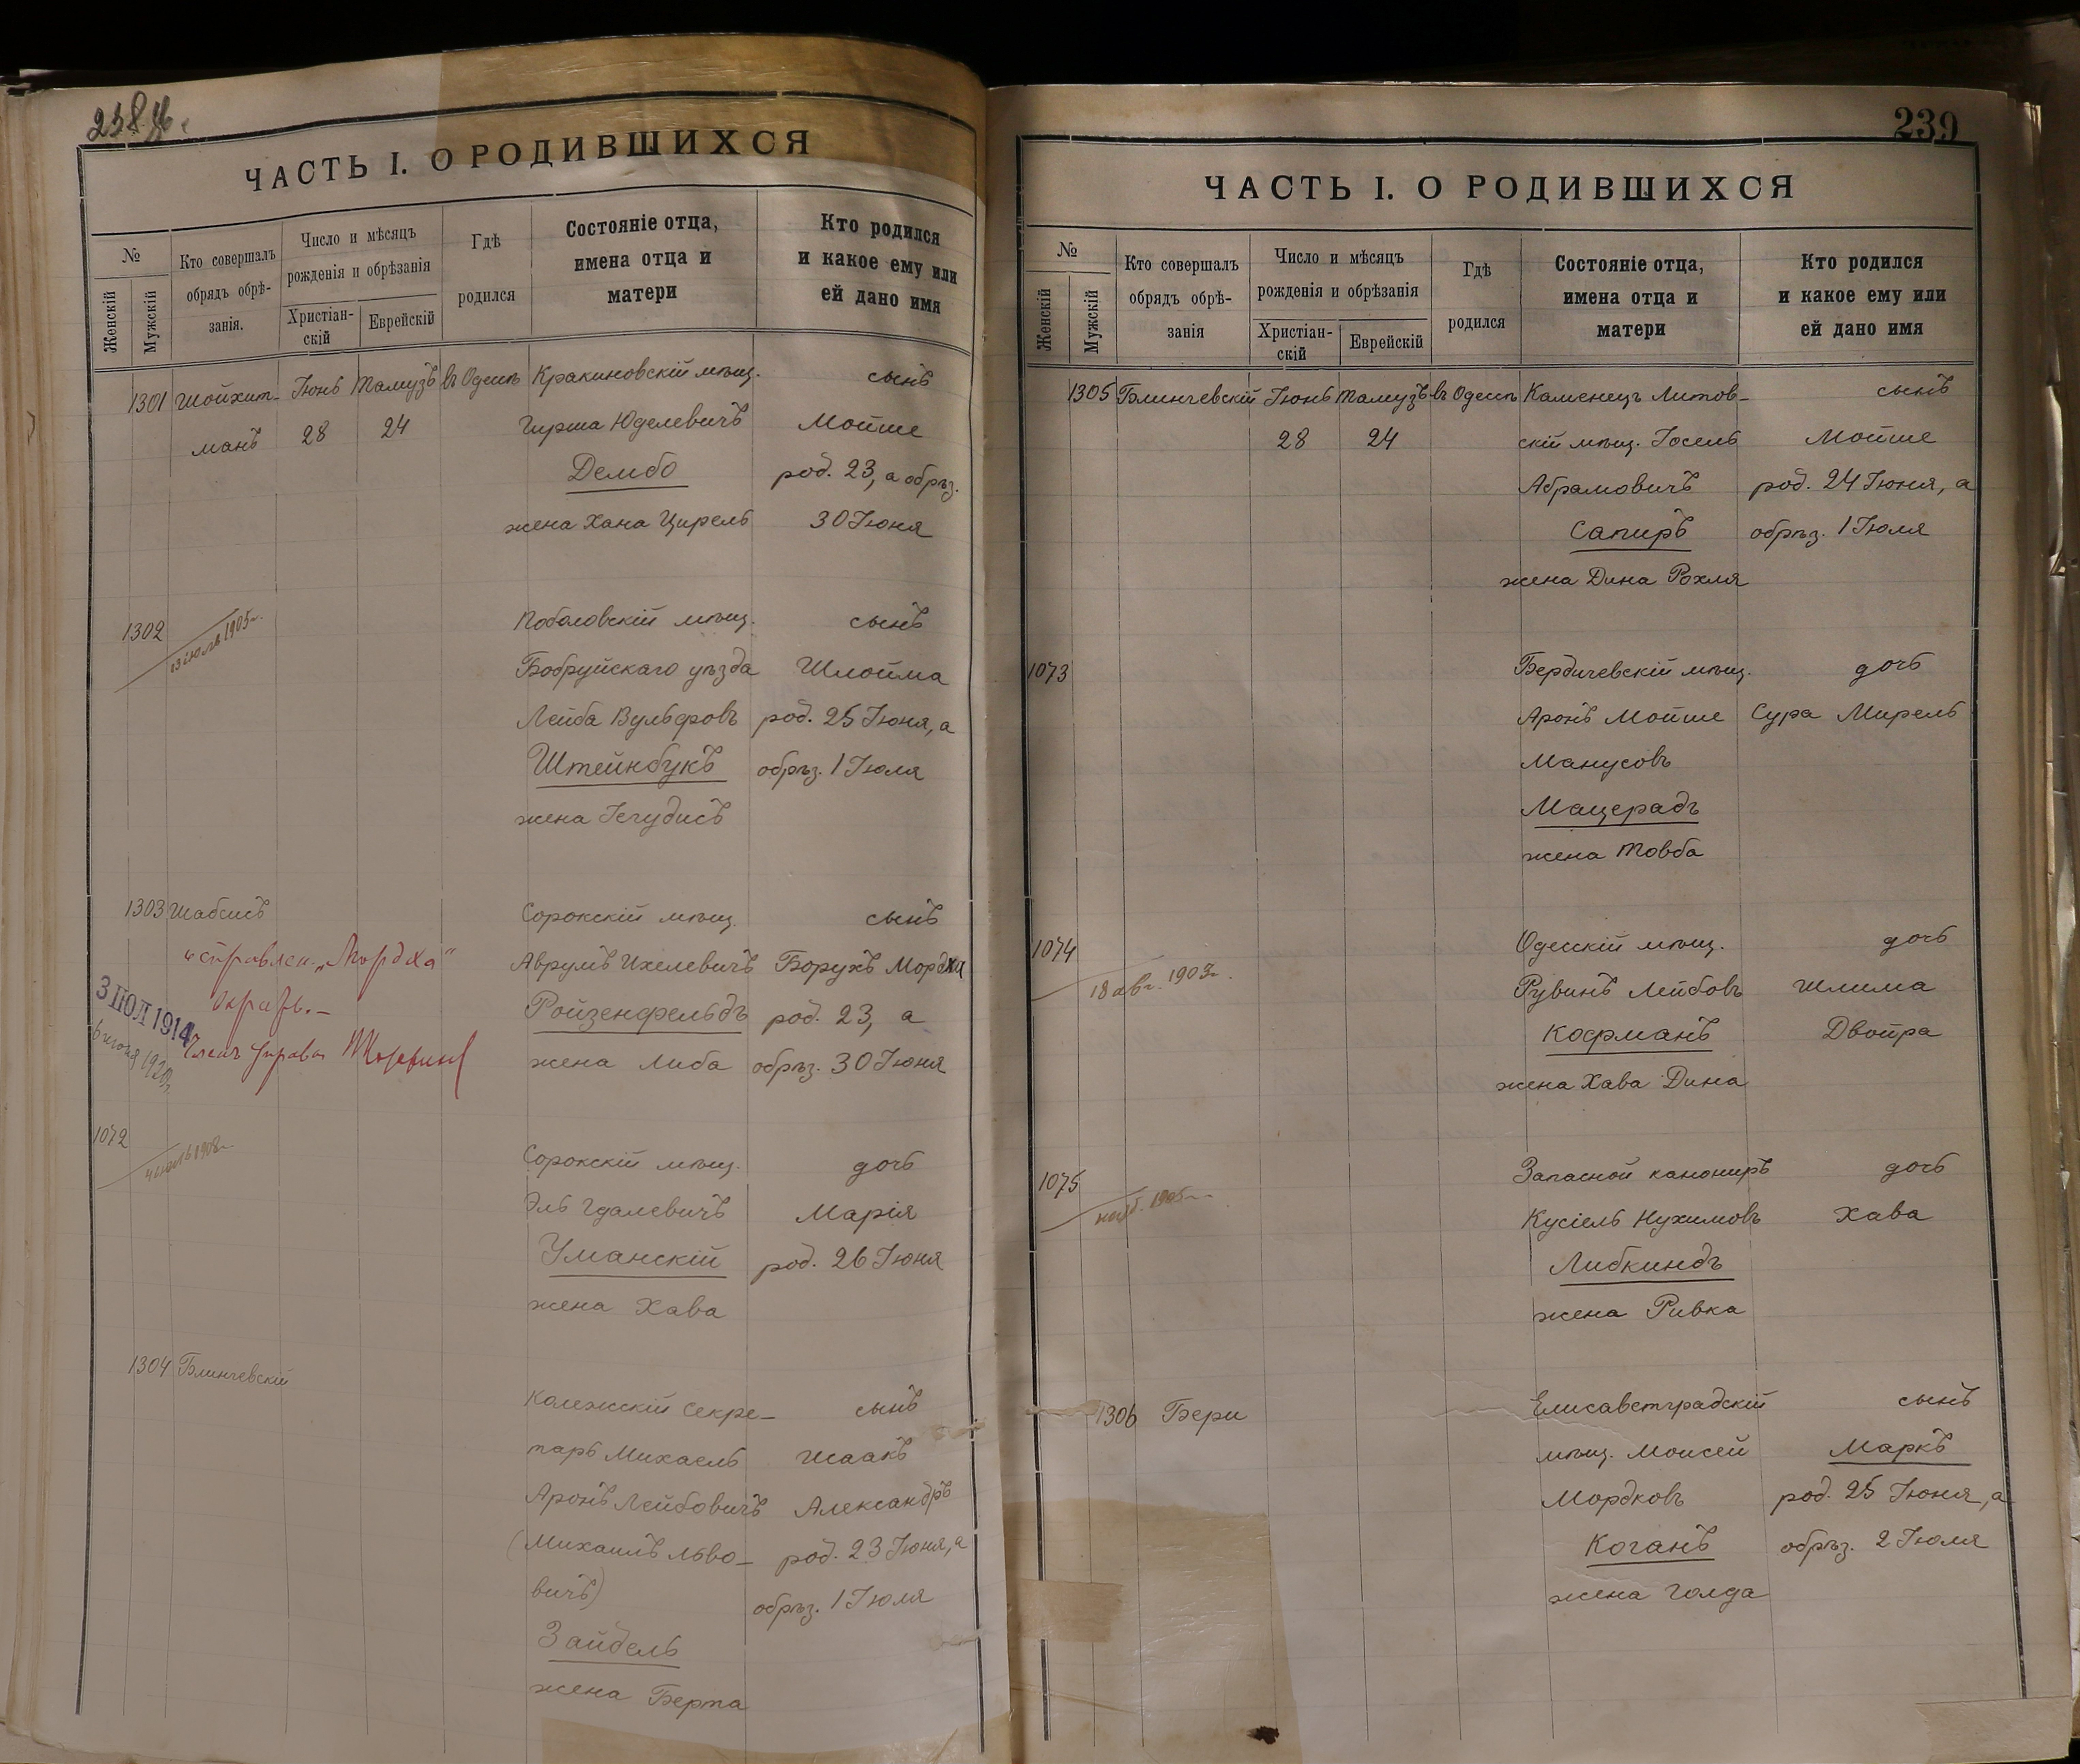 ЧАСТЬ I. О РОДИВШИХСЯ
№
Женскій
Мужскій
Кто совершалъ
обрядъ обрѣ-
занія.
Число и мѣсяцъ
рожденія и обрѣзанія
Христіан-
скій
Еврейскій
Гдѣ
родился
Состояніе отца,
имена отца и
матери
Кто родился
и какое ему или
ей дано имя
1301 Шойхит- Іюнь Тамузъ въ Одессѣ Кракиновскій мѣщ. сынъ
манъ 28 24 Гирша Юделевичъ Мойше
Дембо род. 23, а обрѣз.
жена Хана Цирель 30 Іюня
1302 Поболовскій мѣщ. сынъ
Бобруйскаго уѣзда Шлойма
Лейба Вульфовъ род. 25 Іюня, а
Штейнбукъ обрѣз. 1 Іюля
жена Іегудисъ
1303 Шабсисъ Сорокскій мѣщ. сынъ
Аврумъ Ихелевичъ Борухъ Мордхи
Ройзенфельдъ род. 23, а
3 ІЮЛ 1914
жена Либа обрѣз. 30 Іюня
1072 Сорокскій мѣщ. дочь
Эль Гдалевичъ Марія
Уманскій род. 26 Іюня
жена Хава
1304 Блинчевскій
Колежскій Секре- сынъ
тарь Михаель Исаакъ
Аронъ Лейбовичъ Александръ
(Михаилъ Льво- род. 23 Іюня, а
вичъ) обрѣз. 1 Іюля
Зайдель
жена Берта
239
ЧАСТЬ I. О РОДИВШИХСЯ
№
Женскій
Мужскій
Кто совершалъ
обрядъ обрѣ-
занія
Число и мѣсяцъ
рожденія и обрѣзанія
Христіан-
скій
Еврейскій
Гдѣ
родился
Состояніе отца,
имена отца и
матери
Кто родился
и какое ему или
ей дано имя
1305 Блинчевскій Іюнь Тамузъ въ Одессѣ Каменецъ Литов- сынъ
28 24 скій мѣщ. Іосель Мойше
Абрамовичъ род. 24 Іюня, а
Сапиръ обрѣз. 1 Іюля
жена Дина Рохля
1073 Бердичевскій мѣщ. дочь
Аронъ Мойше Сура Мирель
Манусовъ
Мацерадъ
жена Товба
1074 Одесскій мѣщ. дочь
18 авг. Рувинъ Лейбовъ Шлима
Кофманъ Двойра
жена Хава Дина
1075 Запасной канониръ дочь
Кусіель Нухимовъ Хава
Либкиндъ
жена Ривка
1306 Бери Елисаветградскій сынъ
мѣщ. Моисей Маркъ
Мордковъ род. 25 Іюня, а
Коганъ обрѣз. 2 Іюля
жена Голда